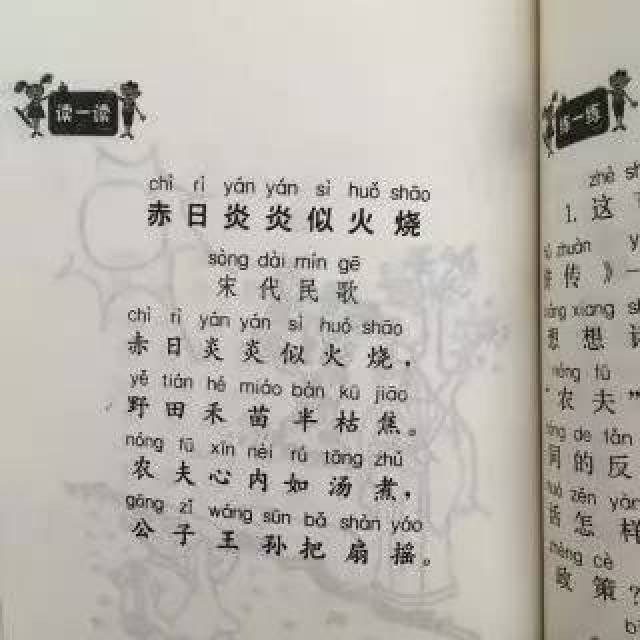 读一读
chì rì yán yán sì huǒ shāo
赤日炎炎似火烧
sòng dài mín gē
宋代民歌
chì rì yán yán sì huǒ shāo
赤日炎炎似火烧，
yě tián hé miáo bàn kū jiāo
野田禾苗半枯焦。
nóng fū xīn nèi rú tāng zhǔ
农夫心内如汤煮，
gōng zǐ wáng sūn bǎ shàn yáo
公子王孙把扇摇。
一练
1. 这
zhuàn
传》一
xiang
想想
nóng fū
“农夫”
de
同的反
zěn
话怎样
cè
政策？